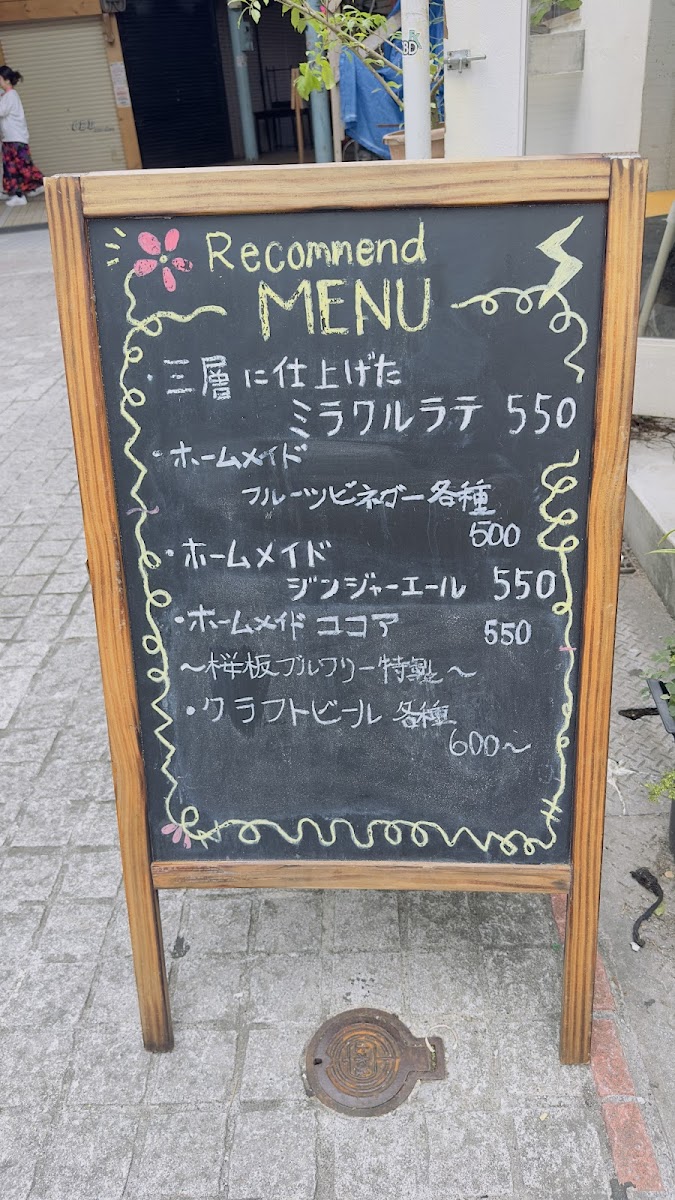 Recommend
MENU
・三層に仕上げた
ミラクルラテ 550
・ホームメイド
フルーツビネガー各種
500
・ホームメイド
ジンジャーエール 550
・ホームメイド ココア 550
〜桜坂ブルワリー特製〜
・クラフトビール 各種
600〜